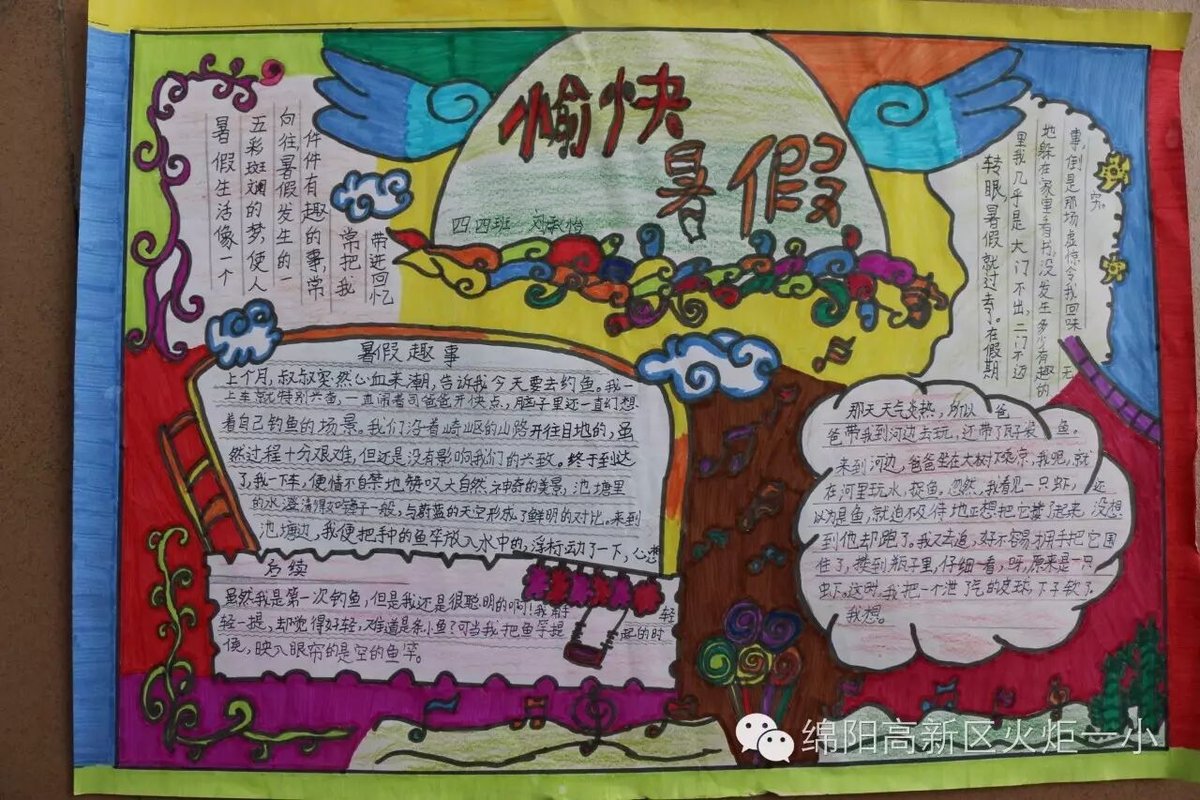 愉快
暑假
四.四班
暑假生活像一个
五彩斑斓的梦,使人
向往,暑假发生的
件件有趣的事,常
常把我
带进回忆
事,倒是那场虚惊令我回味无
穷。
地躲在家里看书,没发生多少有趣的
里我几乎是大门不出,二门不迈
转眼,暑假就过去了。在假期
暑假趣事
上个月,叔叔突然心血来潮,告诉我今天要去钓鱼。我一
上车就特别兴奋,一直闹着司爸爸开快点,脑子里还一直幻想
着自己钓鱼的场景。我们沿着崎岖的山路开往目地的,虽
然过程十分艰难,但还是没有影响我们的兴致。终于到达
了,我一下车,便情不自禁地赞叹大自然神奇的美景,池塘里
的水澄清得如镜子一般,与蔚蓝的天空形成了鲜明的对比。来到
池塘边,我便把手中的鱼竿放入水中的,浮标动了一下,心想
后续
虽然我是第一次钓鱼,但是我还是很聪明的啊!我
轻
轻一提,却觉得好轻,难道是条小鱼?可当我把鱼竿提
起的时
侯,映入眼帘的是空的鱼竿。
那天天气炎热,所以爸
爸带我到河边去玩,还带了瓶子装鱼。
来到河边,爸爸坐在大树下乘凉,我呢,就
在河里玩水,捉鱼。忽然,我看见一只虾,还
以为是鱼,就迫不及待地正想把它捧起来,没想
到他却跑了,我又去追,好不容易用手把它围
住了,捧到瓶子里,仔细一看,呀,原来是一只
虾。这时,我把一个泄了气的皮球,下子软了
我想。
绵阳高新区火炬一小